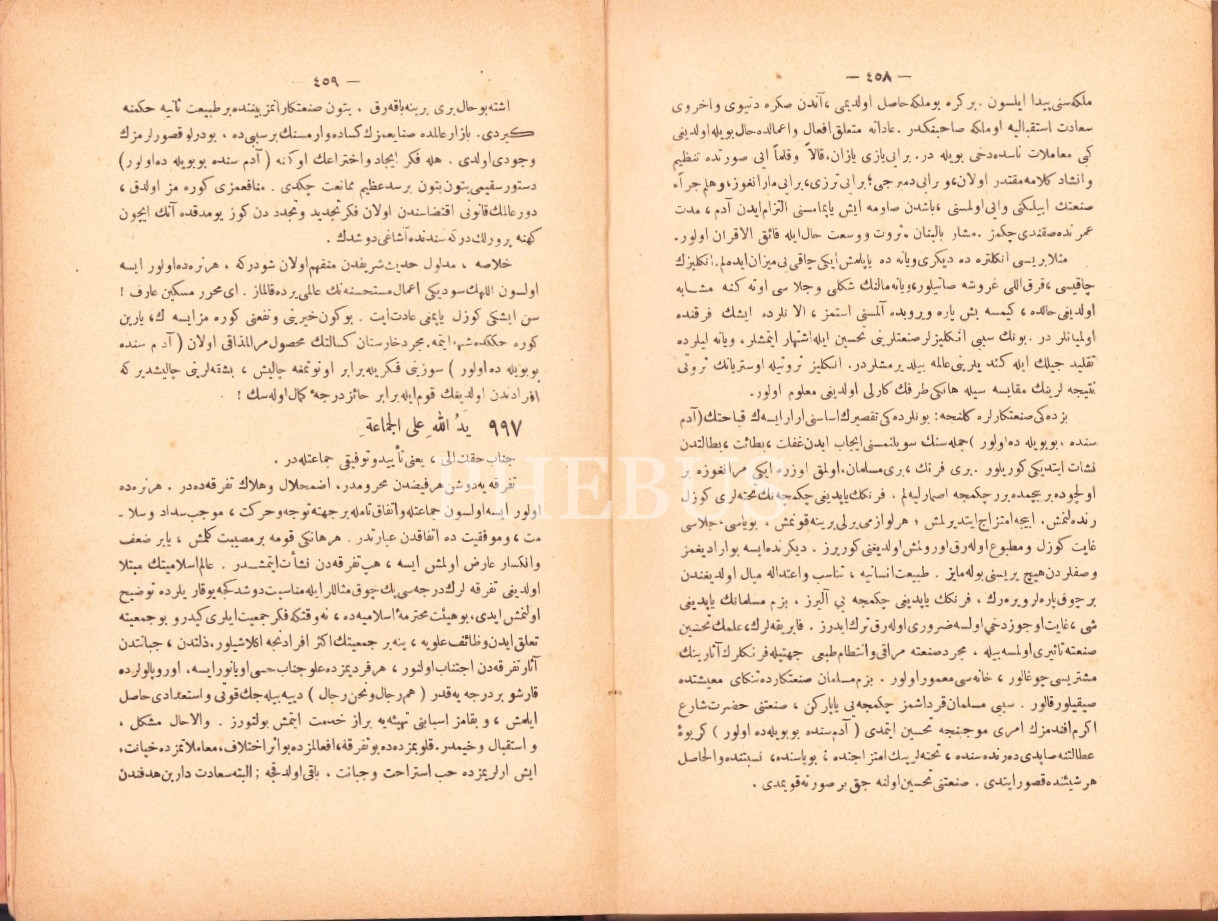 — ٤٥٨ —
ملكه‌سنی پیدا ایلسون . بر كره بو ملكه حاصل اولدیمی ، آندن صكره دنیوی و اخروی
سعادت استقبالیه او ملكه صاحبنكدر . عادانه متعلق افعال و اعمالده حال بویله اولدیغی
كبی معاملات ناسده دخی بویله در . برایی یازی یازان ، قالاً و قلماً ایی صورتده تنظیم
و انشاد كلامه مقتدر اولان ، و برایی دمیرجی ؛ برایی ترزی ، برایی مارانغوز ، و هلم جراً ،
صنعتك اییلكنی و ایی اولمسنی ، باشدن صاومه ایش یاپمامسنی التزام ایدن آدم ، مدت
عمرنده صقندی چكمز . مشار بالبنان . ثروت و وسعت حال ایله فائق الاقران اولور .
مثلا بریسی انكلتره ده دیكری ویانه ده یاپلمش ایكی چاقی بی میزان ایده‌لم . انكلیزك
چاقیسی ، قرق اللی غروشه صاتیلور ، ویانه مالنك شكلی و جلاسی اوته كنه مشابه
اولدیغی حالده ، كیمسه بش پاره ویروبده آلمسنی استمز ، الا نلرده ایشك فرقنده
اولمیانلر در . بونك سببی انكلیزلر صنعتلرینی تحسین ایله اشتهار ایتمشلر . ویانه لیلرده
تقلید جیلك ایله كندیلرینی عالمه بیلدیرمشلردر . انكلیز ثروتیله اوستریانك ثروتی
نتیجه لرینك مقایسه سیله هانكی طرفك كارلی اولدیغی معلوم اولور .
بزده كی صنعتكارلره كلنجه : بونلرده كی تقصیرك اساسی ارارایسه ك قباحتك ( آدم
سنده . بوبویله ده اولور ) جمله سنك سویلنمسنی ایجاب ایدن غفلت ، بطائت ، بطالتدن
نشات ایتدیكی كوریلور . بری فرنك ، بری مسلمان ، اولمق اوزره ایكی مرانغوزه بر
اولجوده بر بیچمده برر چكمجه اصمارلیه لم . فرنكك یاپدیغی چكمجه نك تخته لری كوزل
رنده لنمش . اییجه امتزاج ایتدیرلمش ؛ هر لوازمی یرلی یرینه قونمش ، بویاسی ، جلاسی
غایت كوزل و مطبوع اوله رق اورولمش اولدیغنی كوریرز . دیكرنده ایسه بو ارادیغمز
وصفلردن هیچ بریسنی بوله مایز . طبیعت انسانیه ، تناسب و اعتداله میال اولدیغندن
بر چوق پاره لر ویره رك . فرنكك یاپدیغی چكمجه یی آلیرز . بزم مسلمانك یاپدیغی
شی ، غایت اوجوز دخی اولسه ضروری اوله رق ترك ایدرز . فابریقه لرك ، علمك تحسین
صنعته تاثیری اولمسه بیله . مجرد صنعته مراقی و انتظام طبعی جهتیله فرنكلرك آثارینك
مشتریسی چوغالور ، خانه سی معمور اولور . بزم مسلمان صنعتكارده تنكنای معیشتده
صیقیلور قالور . سببی مسلمان قرداشمز چكمجه یی یاپاركن ، صنعتنی حضرت شارع
اكرم افندمزك امری موجبنجه تحسین ایتمدی ( آدم سنده بوبویله ده اولور ) كریوهٔ
عطالتنه صاپدی ده رنده سنده ، تخته لرینك امتزاجنده ؛ بویاسنده ، نسبتنده والحاصل
هر شیئنده قصور ایتدی . صنعتنی تحسین اولنه جق بر صورته قویمدی .
— ٤٥٩ —
اشته بو حال بری برینه باقه رق ، بتون صنعتكارانمز بیننده بر طبیعت ثانیه حكمنه
كیردی . بازار عالمده صنایعمزك كساده وارمسنك بر سببی ده ، بو درلو قصورلرمزك
وجودی اولدی . هله فكر ایجاد و اختراعك اوكنه ( آدم سنده بوبویله ده اولور )
دستور سقیمی بتون بتون بر سد عظیم ممانعت چكدی . منافعمزی كوره مز اولدق ،
دور عالمك قانونی اقتضاسندن اولان فكر تجدید و تجدد دن كوز یومدقده آنك ایچون
كهنه پرورلك دركه سندنده آشاغی دوشدك .
خلاصه ، مدلول حدیث شریفدن متفهم اولان شودركه ، هر نره ده اولور ایسه
اولسون اللهك سودیكی اعمال مستحسنه نك عالمی یرده قالماز . ای محرر مسكین عارف !
سن ایشكی كوزل یاپمنی عادت ایت . بوكون خیرینی و نفعنی كوره مز ایسه ك ، یارین
كوره حككده شبهه ایتمه . مجرد خارستان كسالتك محصول مر المذاقی اولان ( آدم سنده
بوبویله ده اولور ) سوزینی فكریله برابر اونوتمغه چالیش ، بشقه لرینی چالیشدیر كه
افرادندن اولدیغك قوم ایله برابر حائز درجهٔ كمال اوله سك !
٩٩٧ يَدُ اللهِ على الجَماعَةِ
جناب حقك الی ، یعنی تأیید و توفیقی جماعتله در .
تفرقه یه دوشن هر فیضدن محرومدر . اضمحلال و هلاك تفرقه ده در . هر نره ده
اولور ایسه اولسون جماعتله و اتفاق تامله بر جهته توجه و حركت ، موجب سداد و سلا ـ
مت ، و موفقیت ده اتفاقدن عبارتدر . هر هانكی قومه بر مصیبت كلمش ، یا بر ضعف
و انكسار عارض اولمش ایسه ، هپ تفرقه دن نشأت ایتمشدر . عالم اسلامیتك مبتلا
اولدیغی تفرقه لرك درجه سی پك چوق مثاللر ایله مناسبت دوشدكجه یوقاریلرده توضیح
اولنمش ایدی ، بو هیئت محترمهٔ اسلامیه ده ، نه وقتكه فكر جمعیت ایلری كیدر و بو جمعیته
تعلق ایدن وظائف علویه ، ینه بر جمعیتك اكثر افرادنجه اكلاشیلور ، ذلتدن ، جبانتدن
آثار تفرقه دن اجتناب اولنور ، هر فردیمزده علو جناب حسی اویانور ایسه . اوروپالولرده
قارشو بر درجه یه قدر ( هم رجال و نحن رجال ) دییه بیله جك قوتی و استعدادی حاصل
ایلمش ، و بقامز اسبابنی تهیئه یه براز خدمت ایتمش بولنورز . و الا حال مشكل ،
و استقبال وخیمدر . قلوبمزده ده بو تفرقه ، افعالمزده بو اثر اختلاف ، معاملاتمزده خیانت ،
ایش ارلریمزده حب استراحت و جبانت . باقی اولدقجه ; البته سعادت دارین هدفندن
THEBUS